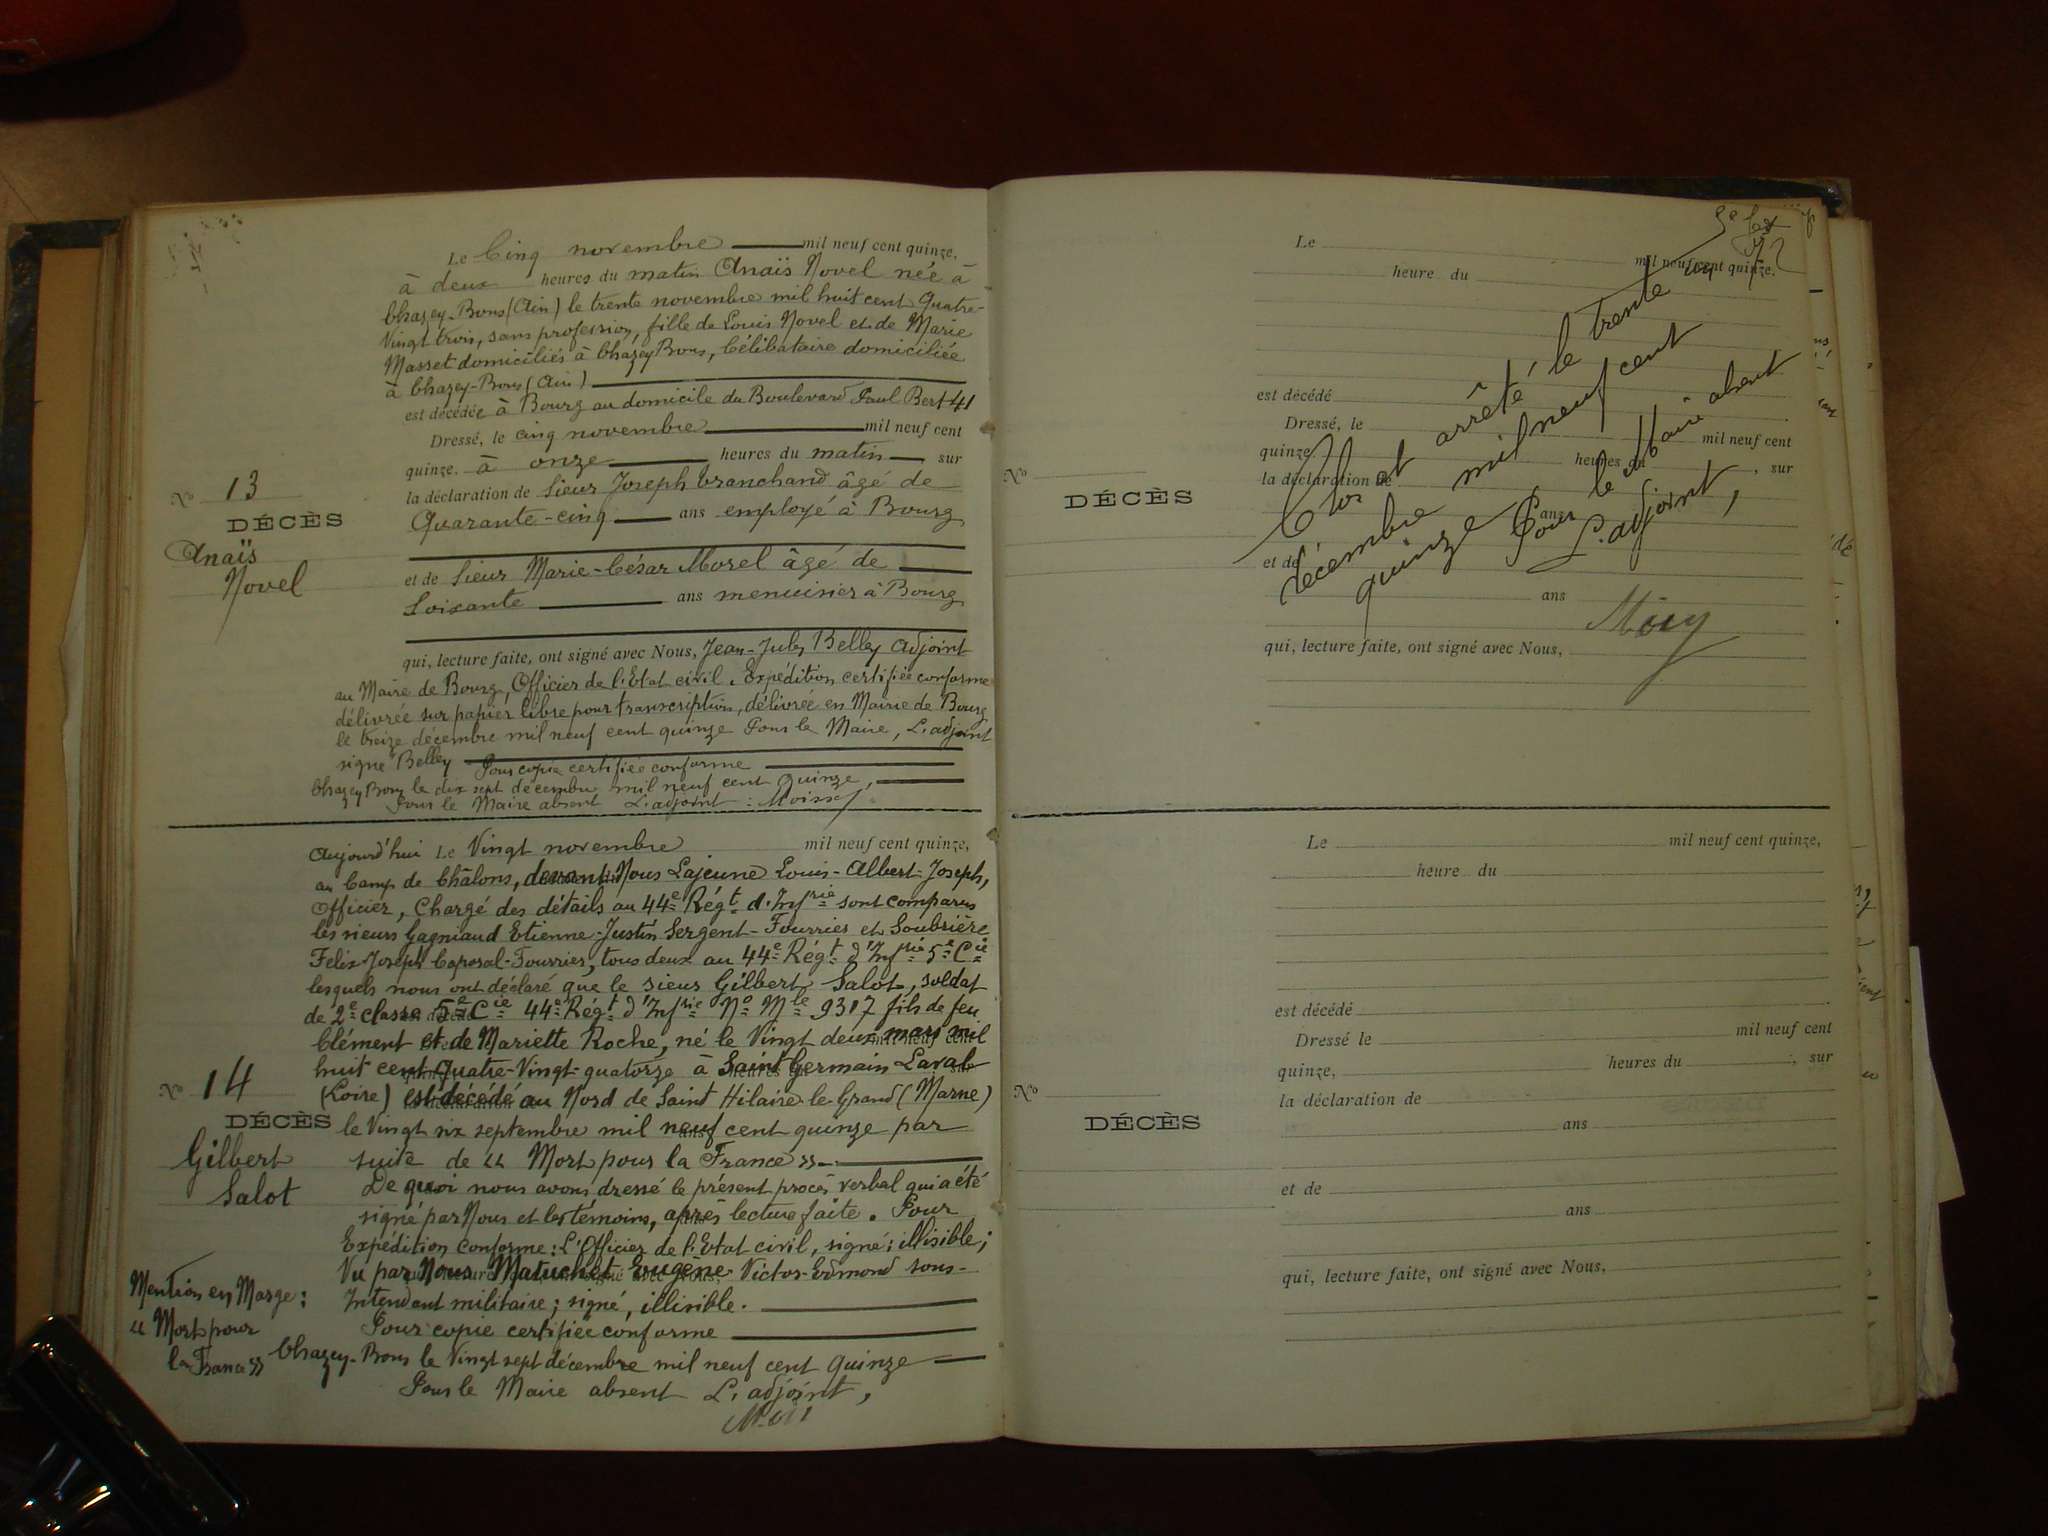 Le Cinq novembre mil neuf cent quinze,
à deux heures du matin Anaïs Novel née à
Chazey-Bons (Ain) le trente novembre mil huit cent Quatre-
Vingt trois, sans profession, fille de Louis Novel et de Marie
Masset domiciliés à Chazey Bons, Célibataire domiciliée
à Chazey-Bons (Ain)
est décédée à Bourg au domicile du Boulevard Paul Bert 41
Dressé, le cinq novembre mil neuf cent
quinze. à onze heures du matin sur
la déclaration de Sieur Joseph Cranchand âgé de
Quarante-cinq ans employé à Bourg
N° 13
DÉCÈS
Anaïs
Novel
et de Sieur Marie-César Morel âgé de
Soixante ans menuisier à Bourg
qui, lecture faite, ont signé avec Nous, Jean-Jules Belley adjoint
au Maire de Bourg, Officier de l'Etat civil. Expédition certifiée conforme
délivrée sur papier libre pour transcription, délivrée en Mairie de Bourg
le treize décembre mil neuf cent quinze Pour le Maire, L'adjoint
signé Belley Pour copie certifiée conforme
Chazey Bons le dix sept décembre mil neuf cent quinze,
Pour le Maire absent L'adjoint :
Aujourd'hui Le Vingt novembre mil neuf cent quinze,
au Camp de Châlons, devant Nous Lajeune Louis-Albert-Joseph,
Officier, Chargé des détails au 44e Régt d'Infrie sont comparus
les sieurs Gagniaud Etienne-Justin Sergent-Fourrier et Soubrière
Felix-Joseph Caporal-Fourrier, tous deux au 44e Régt d'Infrie 5e Cie
lesquels nous ont déclaré que le sieur Gilbert Salot, soldat
de 2e classe 5e Cie 44e Régt d'Infrie No Mle 9317 fils de feu
Clément et de Mariette Roche, né le Vingt deux mars mil
huit cent Quatre-Vingt-quatorze à Saint Germain-Laval
(Loire) est décédé au Nord de Saint Hilaire le Grand (Marne)
le Vingt six septembre mil neuf cent quinze par
suite de "Mort pour la France".
De quoi nous avons dressé le présent procès verbal qui a été
signé par Nous et les témoins, après lecture faite. Pour
Expédition Conforme: L'Officier de l'Etat civil, signé: illisible;
Vu par Nous Matuchet Eugène Victor-Edmond sous-
Intendant militaire; signé, illisible.
Pour copie certifiée conforme
Chazey-Bons le Vingt sept décembre mil neuf cent Quinze
Pour le Maire absent L'adjoint,
N° 14
DÉCÈS
Gilbert
Salot
Mention en Marge:
"Mort pour
la France"
Le mil neuf cent quinze.
heure du
est décédé
Dressé, le mil neuf cent
quinze heures du , sur
la déclaration de
ans
N°
DÉCÈS
et de
ans
qui, lecture faite, ont signé avec Nous,
Clos et arrêté le trente un
décembre mil neuf cent
quinze Pour le Maire absent
L'adjoint,
Le mil neuf cent quinze,
heure du
est décédé
Dressé le mil neuf cent
quinze, heures du , sur
la déclaration de
ans
N°
DÉCÈS
et de
ans
qui, lecture faite, ont signé avec Nous,